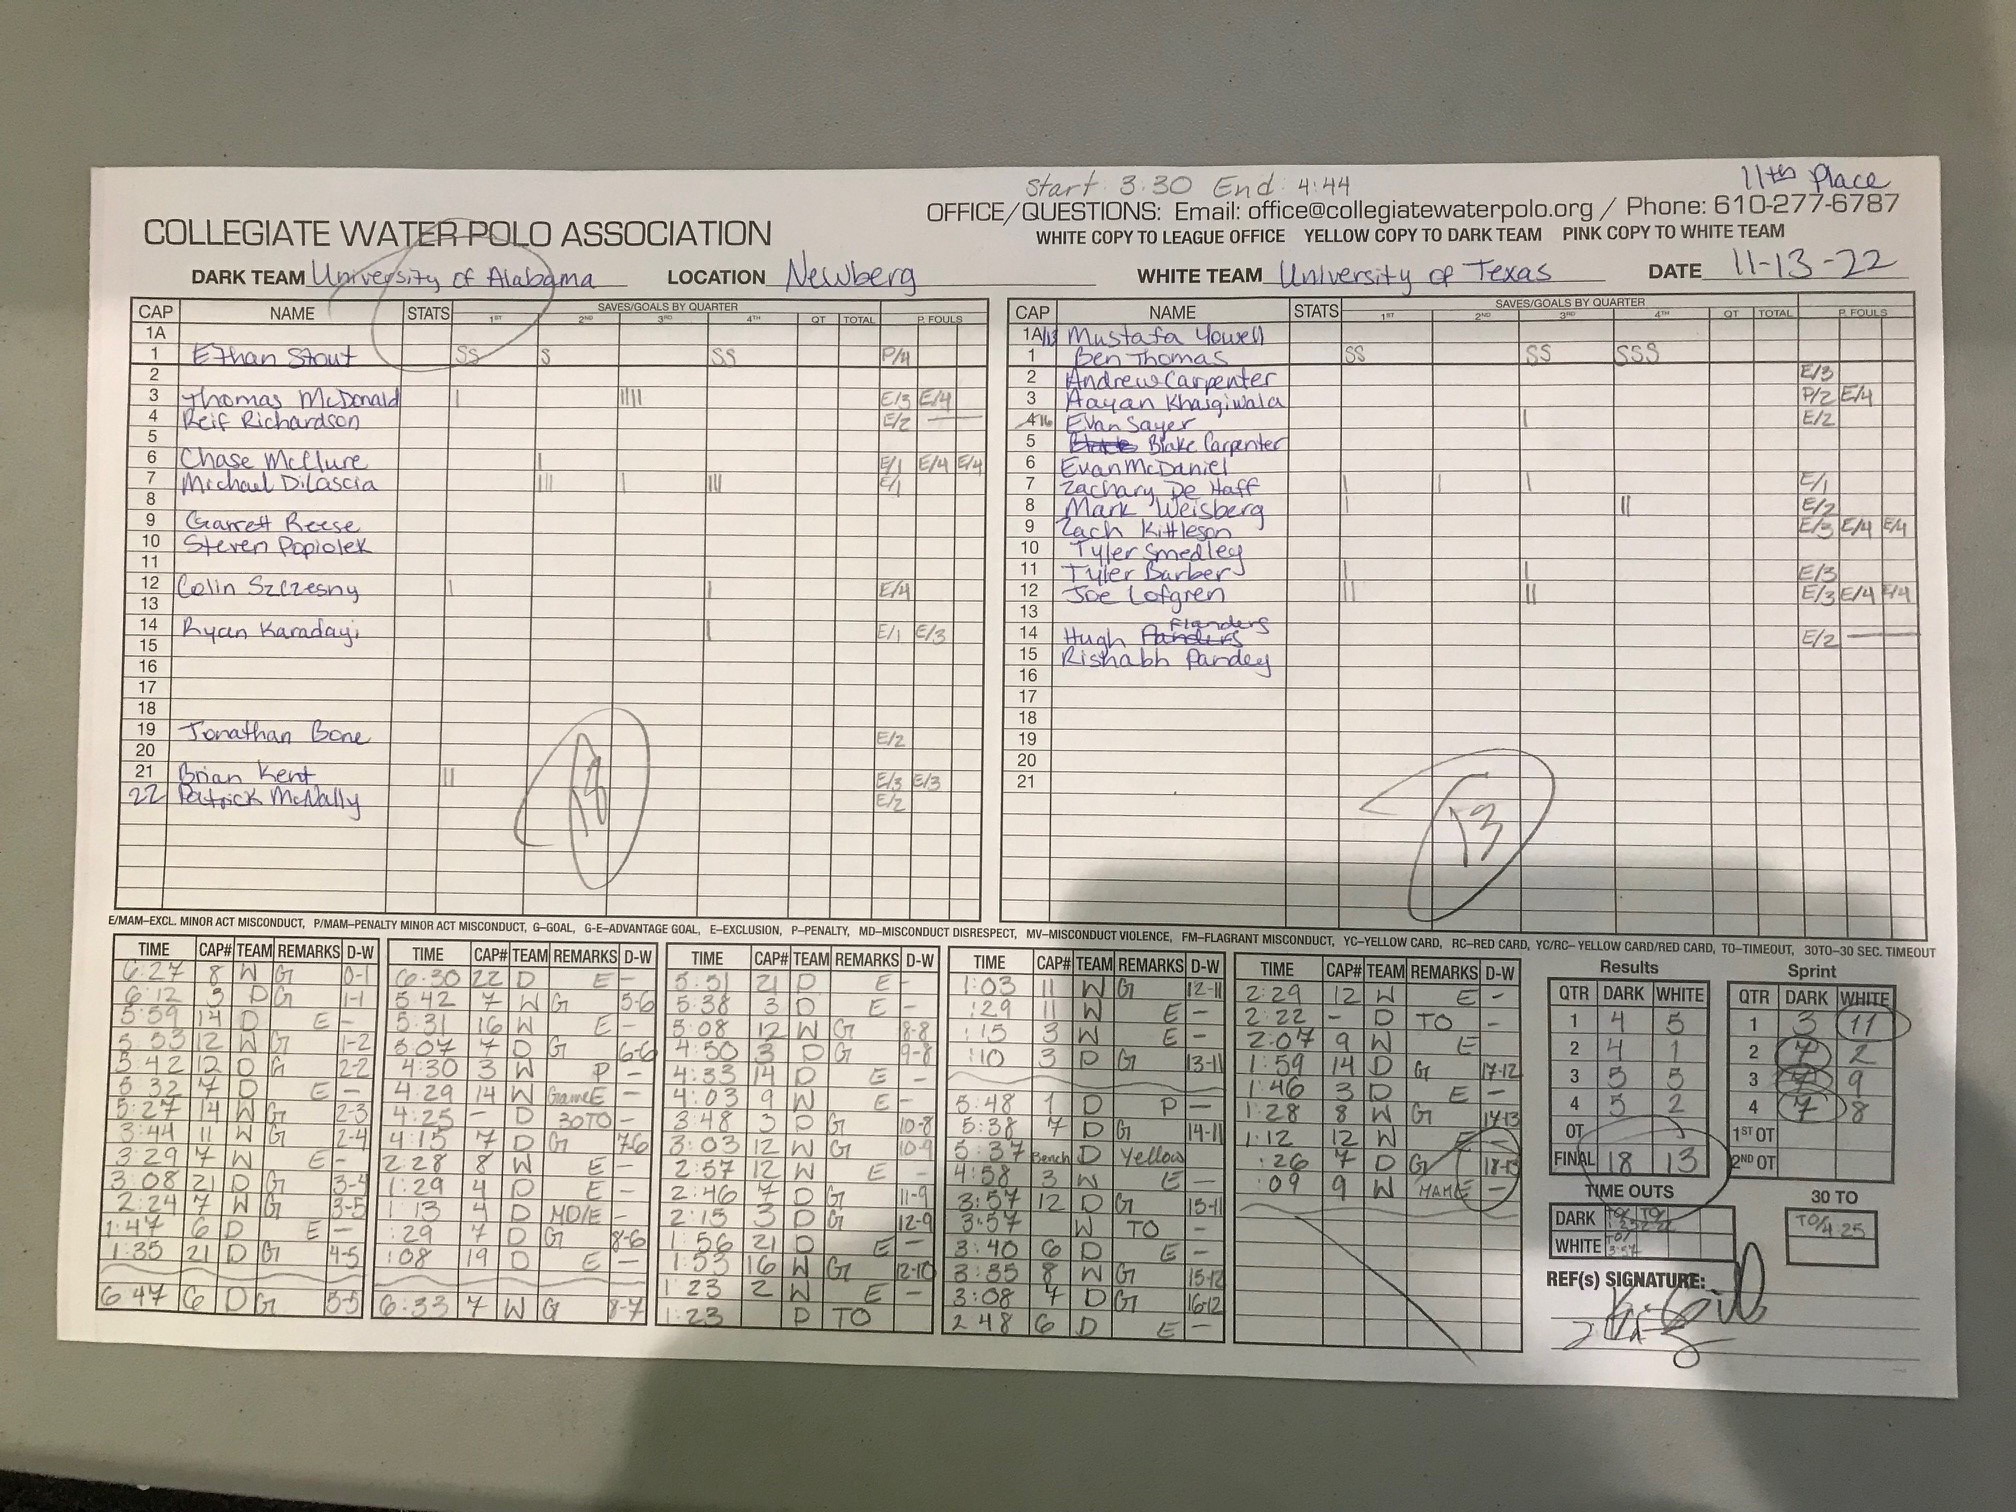 Start 3:30 End: 4:44
11th Place
OFFICE/QUESTIONS: Email: office@collegiatewaterpolo.org / Phone: 610-277-6787
COLLEGIATE WATER POLO ASSOCIATION
WHITE COPY TO LEAGUE OFFICE YELLOW COPY TO DARK TEAM PINK COPY TO WHITE TEAM
DARK TEAM University of Alabama LOCATION Newberg WHITE TEAM University of Texas DATE 11-13-22
CAP NAME STATS SAVES/GOALS BY QUARTER 1ST 2ND 3RD 4TH OT TOTAL P. FOULS
1A
1 Ethan Stout SS S SS P/4
2
3 Thomas McDonald | |||| E/3 E/4
4 Reif Richardson E/2
5
6 Chase McClure | E/1 E/4 E/4
7 Michael DiLascia ||| | ||| E/1
8
9 Garrett Reese
10 Steven Popiolek
11
12 Colin Szczesny | | E/4
13
14 Ryan Karadayi | E/1 E/3
15
16
17
18
19 Jonathan Bone E/2
20
21 Brian Kent || E/3 E/3
22 Patrick McNally E/2
18
CAP NAME STATS SAVES/GOALS BY QUARTER 1ST 2ND 3RD 4TH OT TOTAL P. FOULS
1A/13 Mustafa Yowell
1 Ben Thomas SS SS SSS
2 Andrew Carpenter E/3
3 Aayan Khaigiwala P/2 E/4
4 16 Evan Sayer | E/2
5 Blake Carpenter
6 Evan McDaniel
7 Zachary De Haff | | | E/1
8 Mark Weisberg | || E/2
9 Zach Kittleson E/3 E/4 E/4
10 Tyler Smedley
11 Tyler Barber | | E/3
12 Joe Lofgren || || E/3 E/4 E/4
13
14 Hugh Flanders E/2
15 Rishabh Pandey
16
17
18
19
20
21
13
E/MAM–EXCL. MINOR ACT MISCONDUCT, P/MAM–PENALTY MINOR ACT MISCONDUCT, G–GOAL, G-E–ADVANTAGE GOAL, E–EXCLUSION, P–PENALTY, MD–MISCONDUCT DISRESPECT, MV–MISCONDUCT VIOLENCE, FM–FLAGRANT MISCONDUCT, YC–YELLOW CARD, RC–RED CARD, YC/RC–YELLOW CARD/RED CARD, TO–TIMEOUT, 30TO–30 SEC. TIMEOUT
TIME CAP# TEAM REMARKS D-W
6:27 8 W G 0-1
6:12 3 D G 1-1
5:59 14 D E -
5:53 12 W G 1-2
5:42 12 D G 2-2
5:32 7 D E -
5:27 14 W G 2-3
3:44 11 W G 2-4
3:29 7 W E -
3:08 21 D G 3-4
2:24 7 W G 3-5
1:47 6 D E -
1:35 21 D G 4-5
6:47 6 D G 5-5
TIME CAP# TEAM REMARKS D-W
6:30 22 D E -
5:42 7 W G 5-6
5:31 16 W E -
5:07 7 D G 6-6
4:30 3 W P -
4:29 14 W GameE -
4:25 - D 30TO -
4:15 7 D G 7-6
2:28 8 W E -
1:29 4 D E -
1:13 4 D MD/E -
:29 7 D G 8-6
:08 19 D E -
6:33 7 W G 8-7
TIME CAP# TEAM REMARKS D-W
5:51 21 D E -
5:38 3 D E -
5:08 12 W G 8-8
4:50 3 D G 9-8
4:33 14 D E -
4:03 9 W E -
3:48 3 D G 10-8
3:03 12 W G 10-9
2:57 12 W E -
2:46 7 D G 11-9
2:15 3 D G 12-9
1:56 21 D E -
1:53 16 W G 12-10
1:23 2 W E -
1:23 D TO
TIME CAP# TEAM REMARKS D-W
1:03 11 W G 12-11
:29 11 W E -
:15 3 W E -
:10 3 D G 13-11
5:48 1 D P -
5:38 7 D G 14-11
5:37 Bench D Yellow
4:58 3 W E -
3:57 12 D G 15-11
3:57 W TO -
3:40 6 D E -
3:35 8 W G 15-12
3:08 7 D G 16-12
2:48 6 D E -
TIME CAP# TEAM REMARKS D-W
2:29 12 W E -
2:22 - D TO -
2:07 9 W E
1:59 14 D G 17-12
1:46 3 D E -
1:28 8 W G 17-13
1:12 12 W E -
:26 7 D G 18-13
:09 9 W MAME -
Results
QTR DARK WHITE
1 4 5
2 4 1
3 5 5
4 5 2
OT
FINAL 18 13
Sprint
QTR DARK WHITE
1 3 11
2 7 2
3 7 9
4 7 8
1ST OT
2ND OT
TIME OUTS
DARK
WHITE TO/ 3:57
30 TO
TO/4:25
REF(s) SIGNATURE: